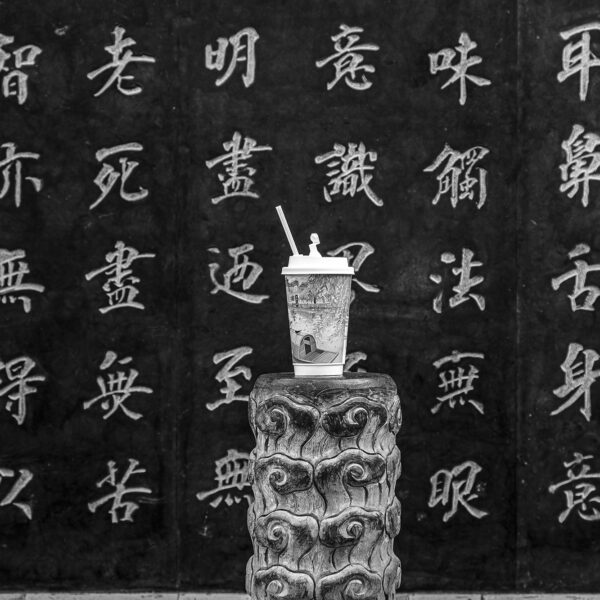 耳鼻舌身意
味觸法無眼
意識界
明盡迺至無
老死盡無苦
智亦無得以